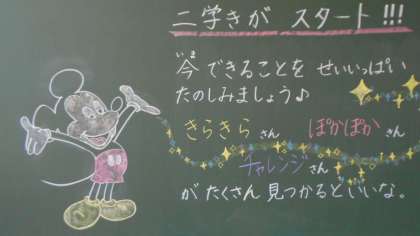 二学きが スタート!!!
今できることを せいいっぱい
たのしみましょう♪
きらきらさん ぽかぽかさん
チャレンジさん
がたくさん見つかるといいな。